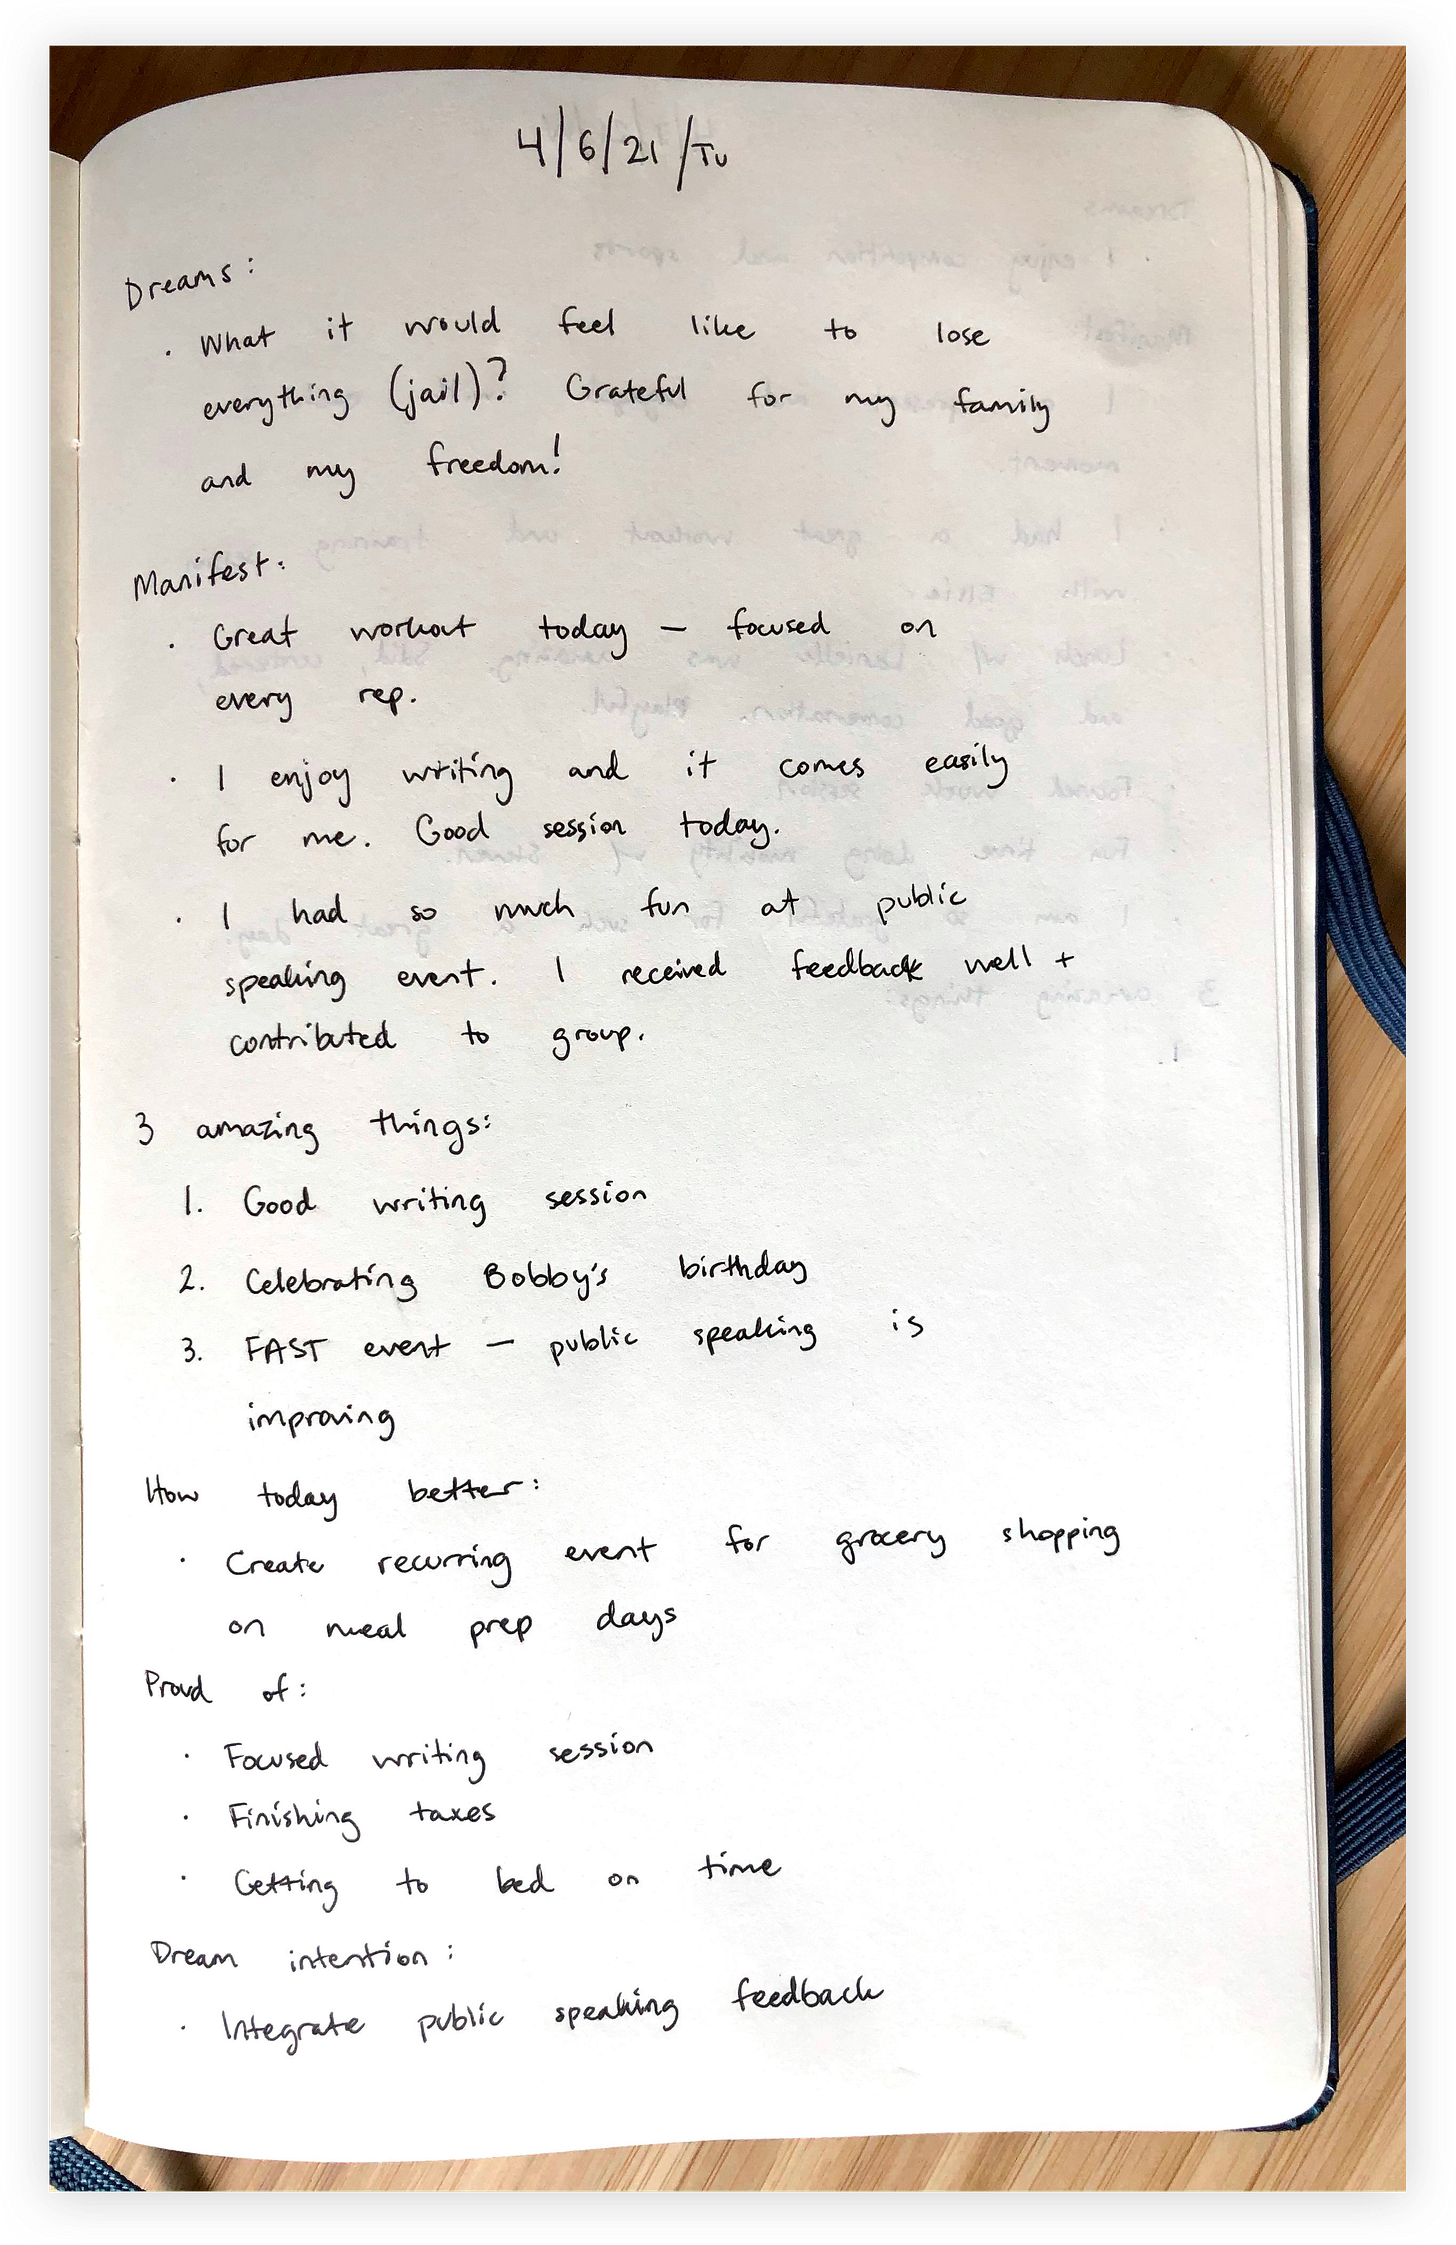 4/6/21/Tu
Dreams:
· What it would feel like to lose
everything (jail)? Grateful for my family
and my freedom!
Manifest:
· Great workout today — focused on
every rep.
· I enjoy writing and it comes easily
for me. Good session today.
· I had so much fun at public
speaking event. I received feedback well +
contributed to group.
3 amazing things:
1. Good writing session
2. Celebrating Bobby's birthday
3. FAST event — public speaking is
improving
How today better:
· Create recurring event for grocery shopping
on meal prep days
Proud of:
· Focused writing session
· Finishing taxes
· Getting to bed on time
Dream intention:
· Integrate public speaking feedback